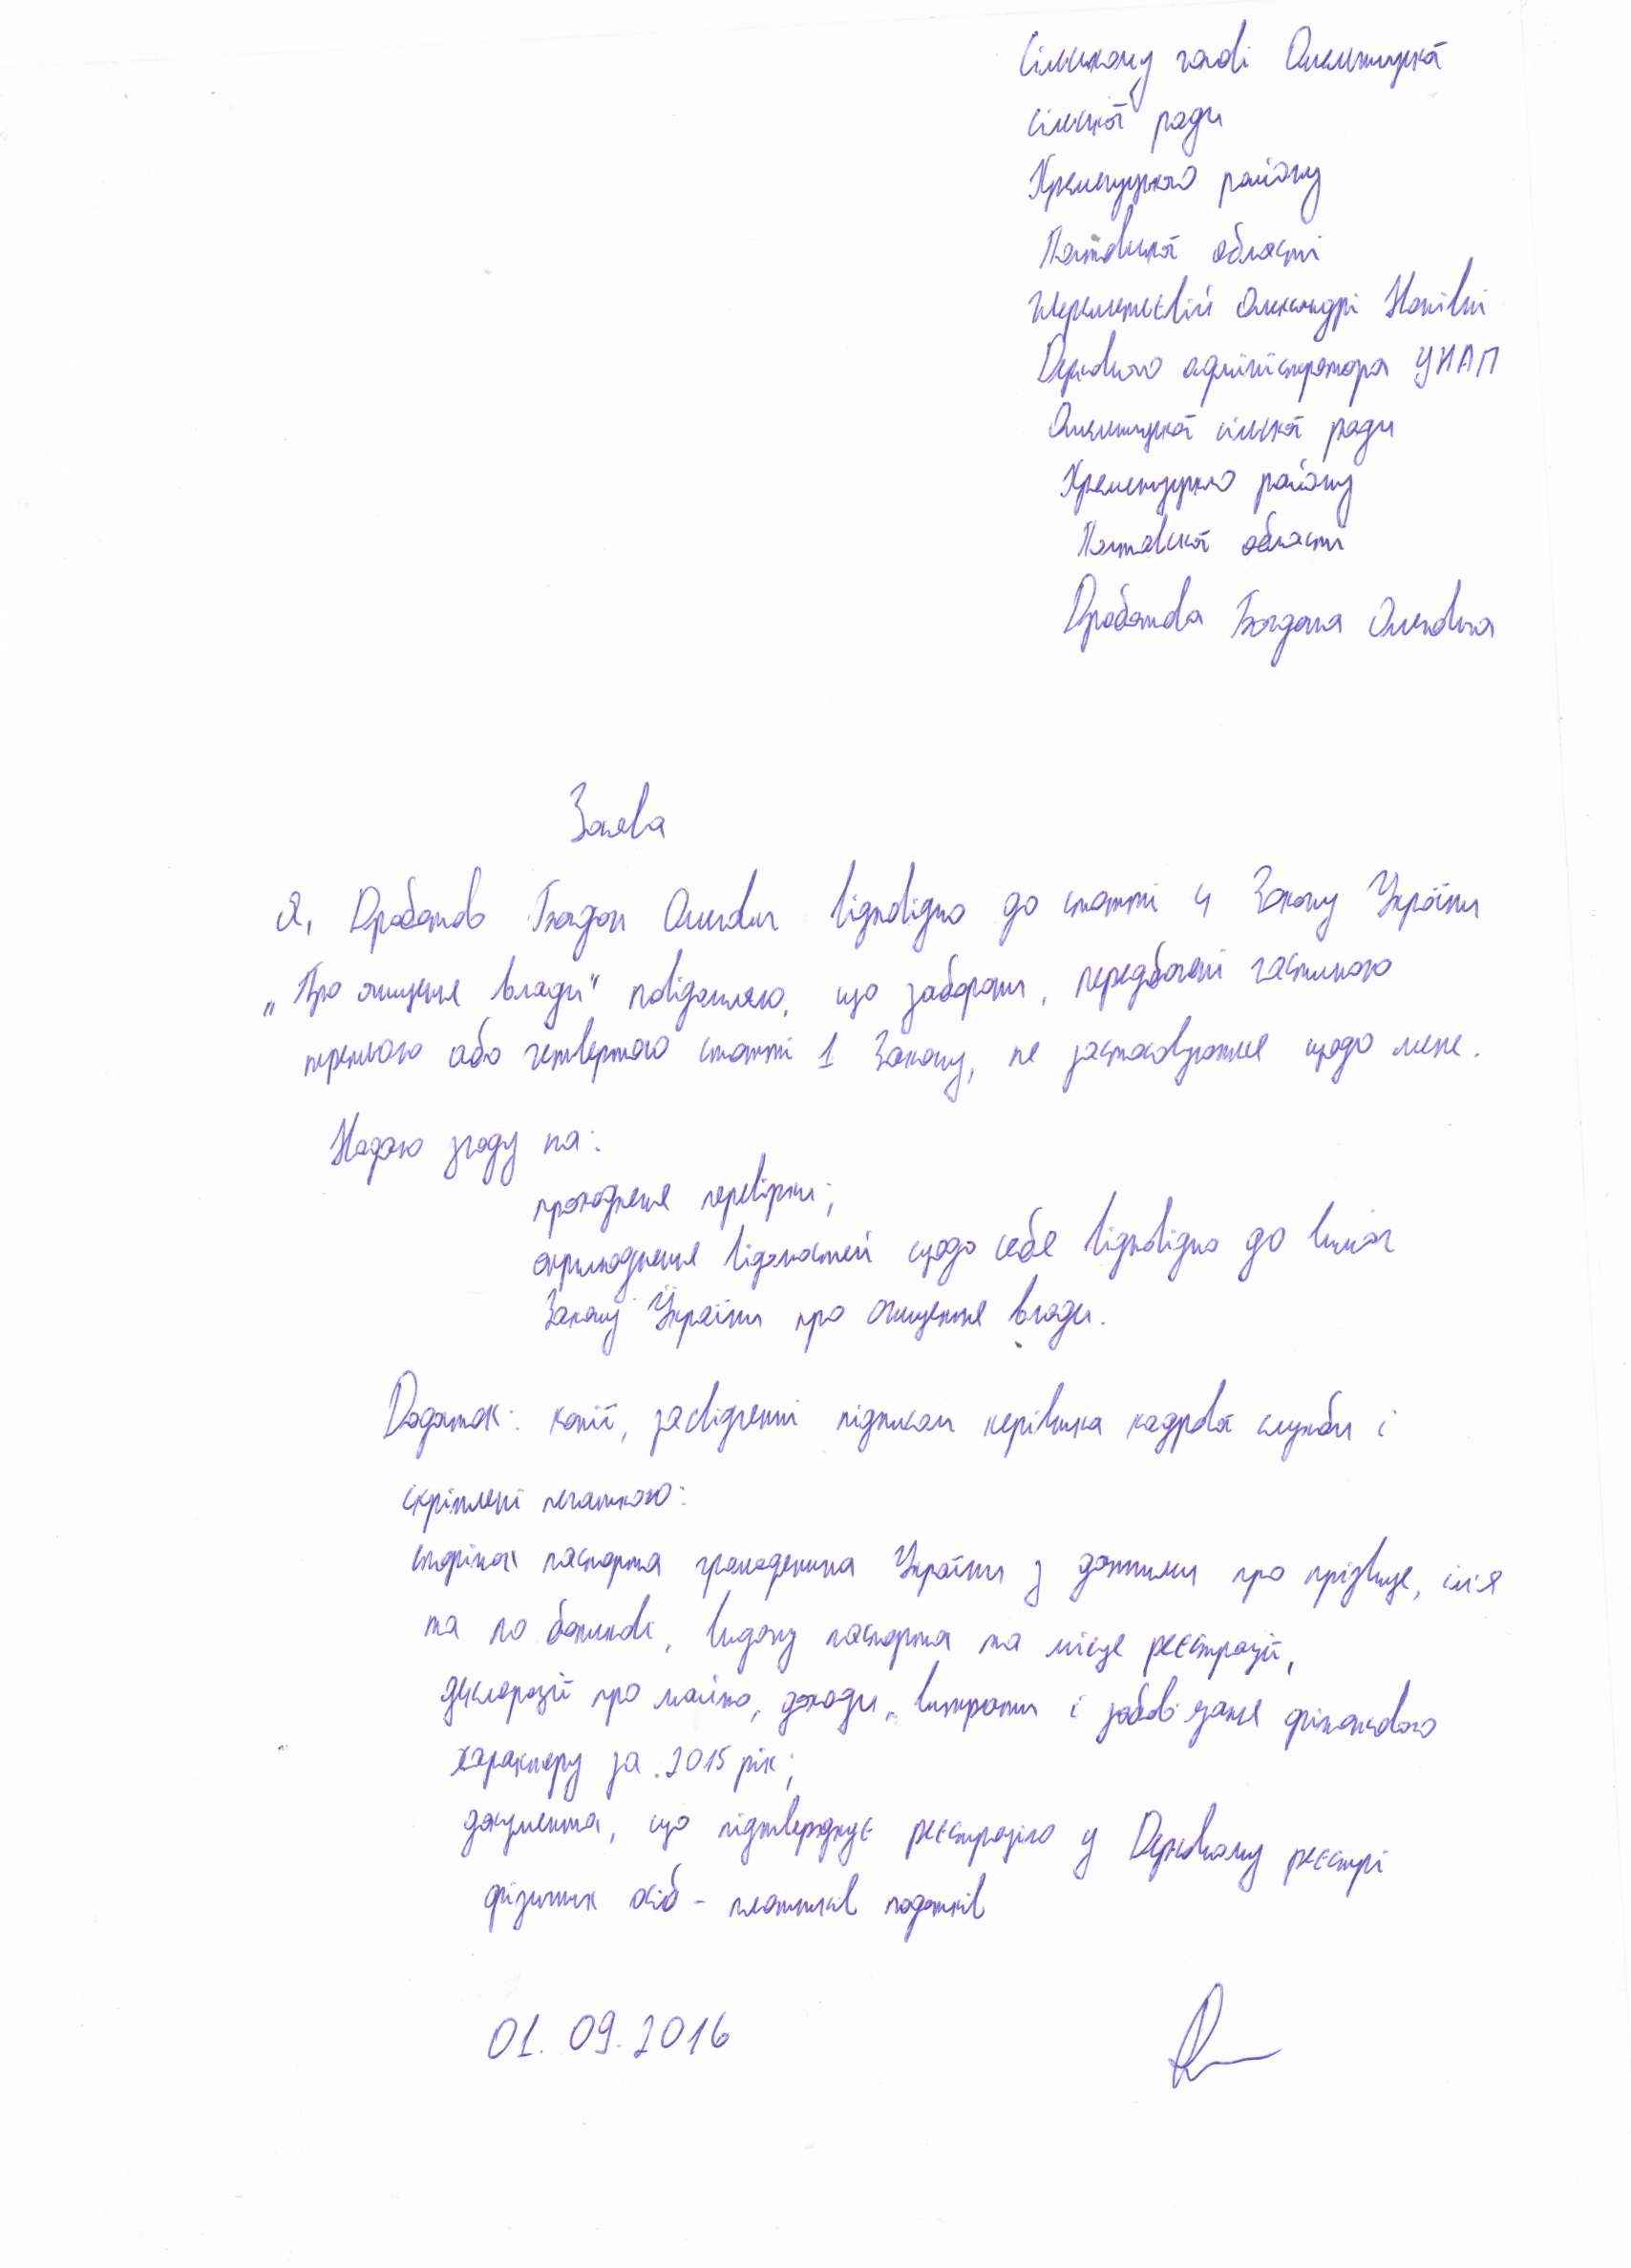 Сільському голові Омельницької
сільської ради
Кременчуцького району
Полтавської області
Шереметьєвій Олександрі
Державного адміністратора ЦНАП
Омельницької сільської ради
Кременчуцького району
Полтавської області
Богдана
Заява
Я, Богдан відповідно до статті 4 Закону України
„Про очищення влади" повідомляю, що заборони, передбачені частиною
третьою або четвертою статті 1 Закону, не застосовуються щодо мене.
Надаю згоду на:
проходження перевірки;
оприлюднення відомостей щодо себе відповідно до вимог
Закону України про очищення влади.
Додаток: копії, засвідченні підписом керівника кадрової служби і
скріплені печаткою:
сторінок паспорта громадянина України з даними про прізвище, ім'я
та по батькові, видачу паспорта та місце реєстрації,
декларації про майно, доходи, витрати і зобов'язання фінансового
характеру за 2015 рік;
документа, що підтверджує реєстрацію у Державному реєстрі
фізичних осіб - платників податків
01.09.2016